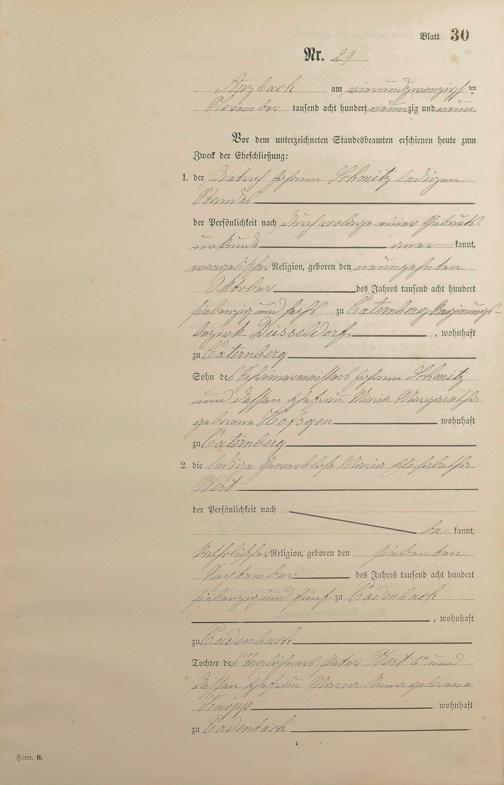 Blatt 30
Nr. 29
Arzbach am vierundzwanzigsten
November tausend acht hundert neunzig und neun
Vor dem unterzeichneten Standesbeamten erschienen heute zum
Zweck der Eheschließung:
1. der Johann Schmitz ledigen
Standes
der Persönlichkeit nach durch Vorlage einer Geburts-
urkunde aner kannt,
evangelischer Religion, geboren den neunzehnten
Oktober des Jahres tausend acht hundert
siebenzig und sechs zu Caternberg Regierungs-
bezirk Düsseldorf, wohnhaft
zu Caternberg
Sohn des Johann Schmitz
und dessen Ehefrau Maria Margaretha
geborene wohnhaft
zu Caternberg
2. die ledige gewerblose Maria Elisabetha
Wert
der Persönlichkeit nach
be kannt,
katholischer Religion, geboren den siebenten
September des Jahres tausend acht hundert
siebenzig und fünf zu Cadenbach
, wohnhaft
zu Cadenbach
Tochter des Taglöhners Peter Wert und
dessen Ehefrau Maria Anna geborene
Knopp wohnhaft
zu Cadenbach
Form. B.